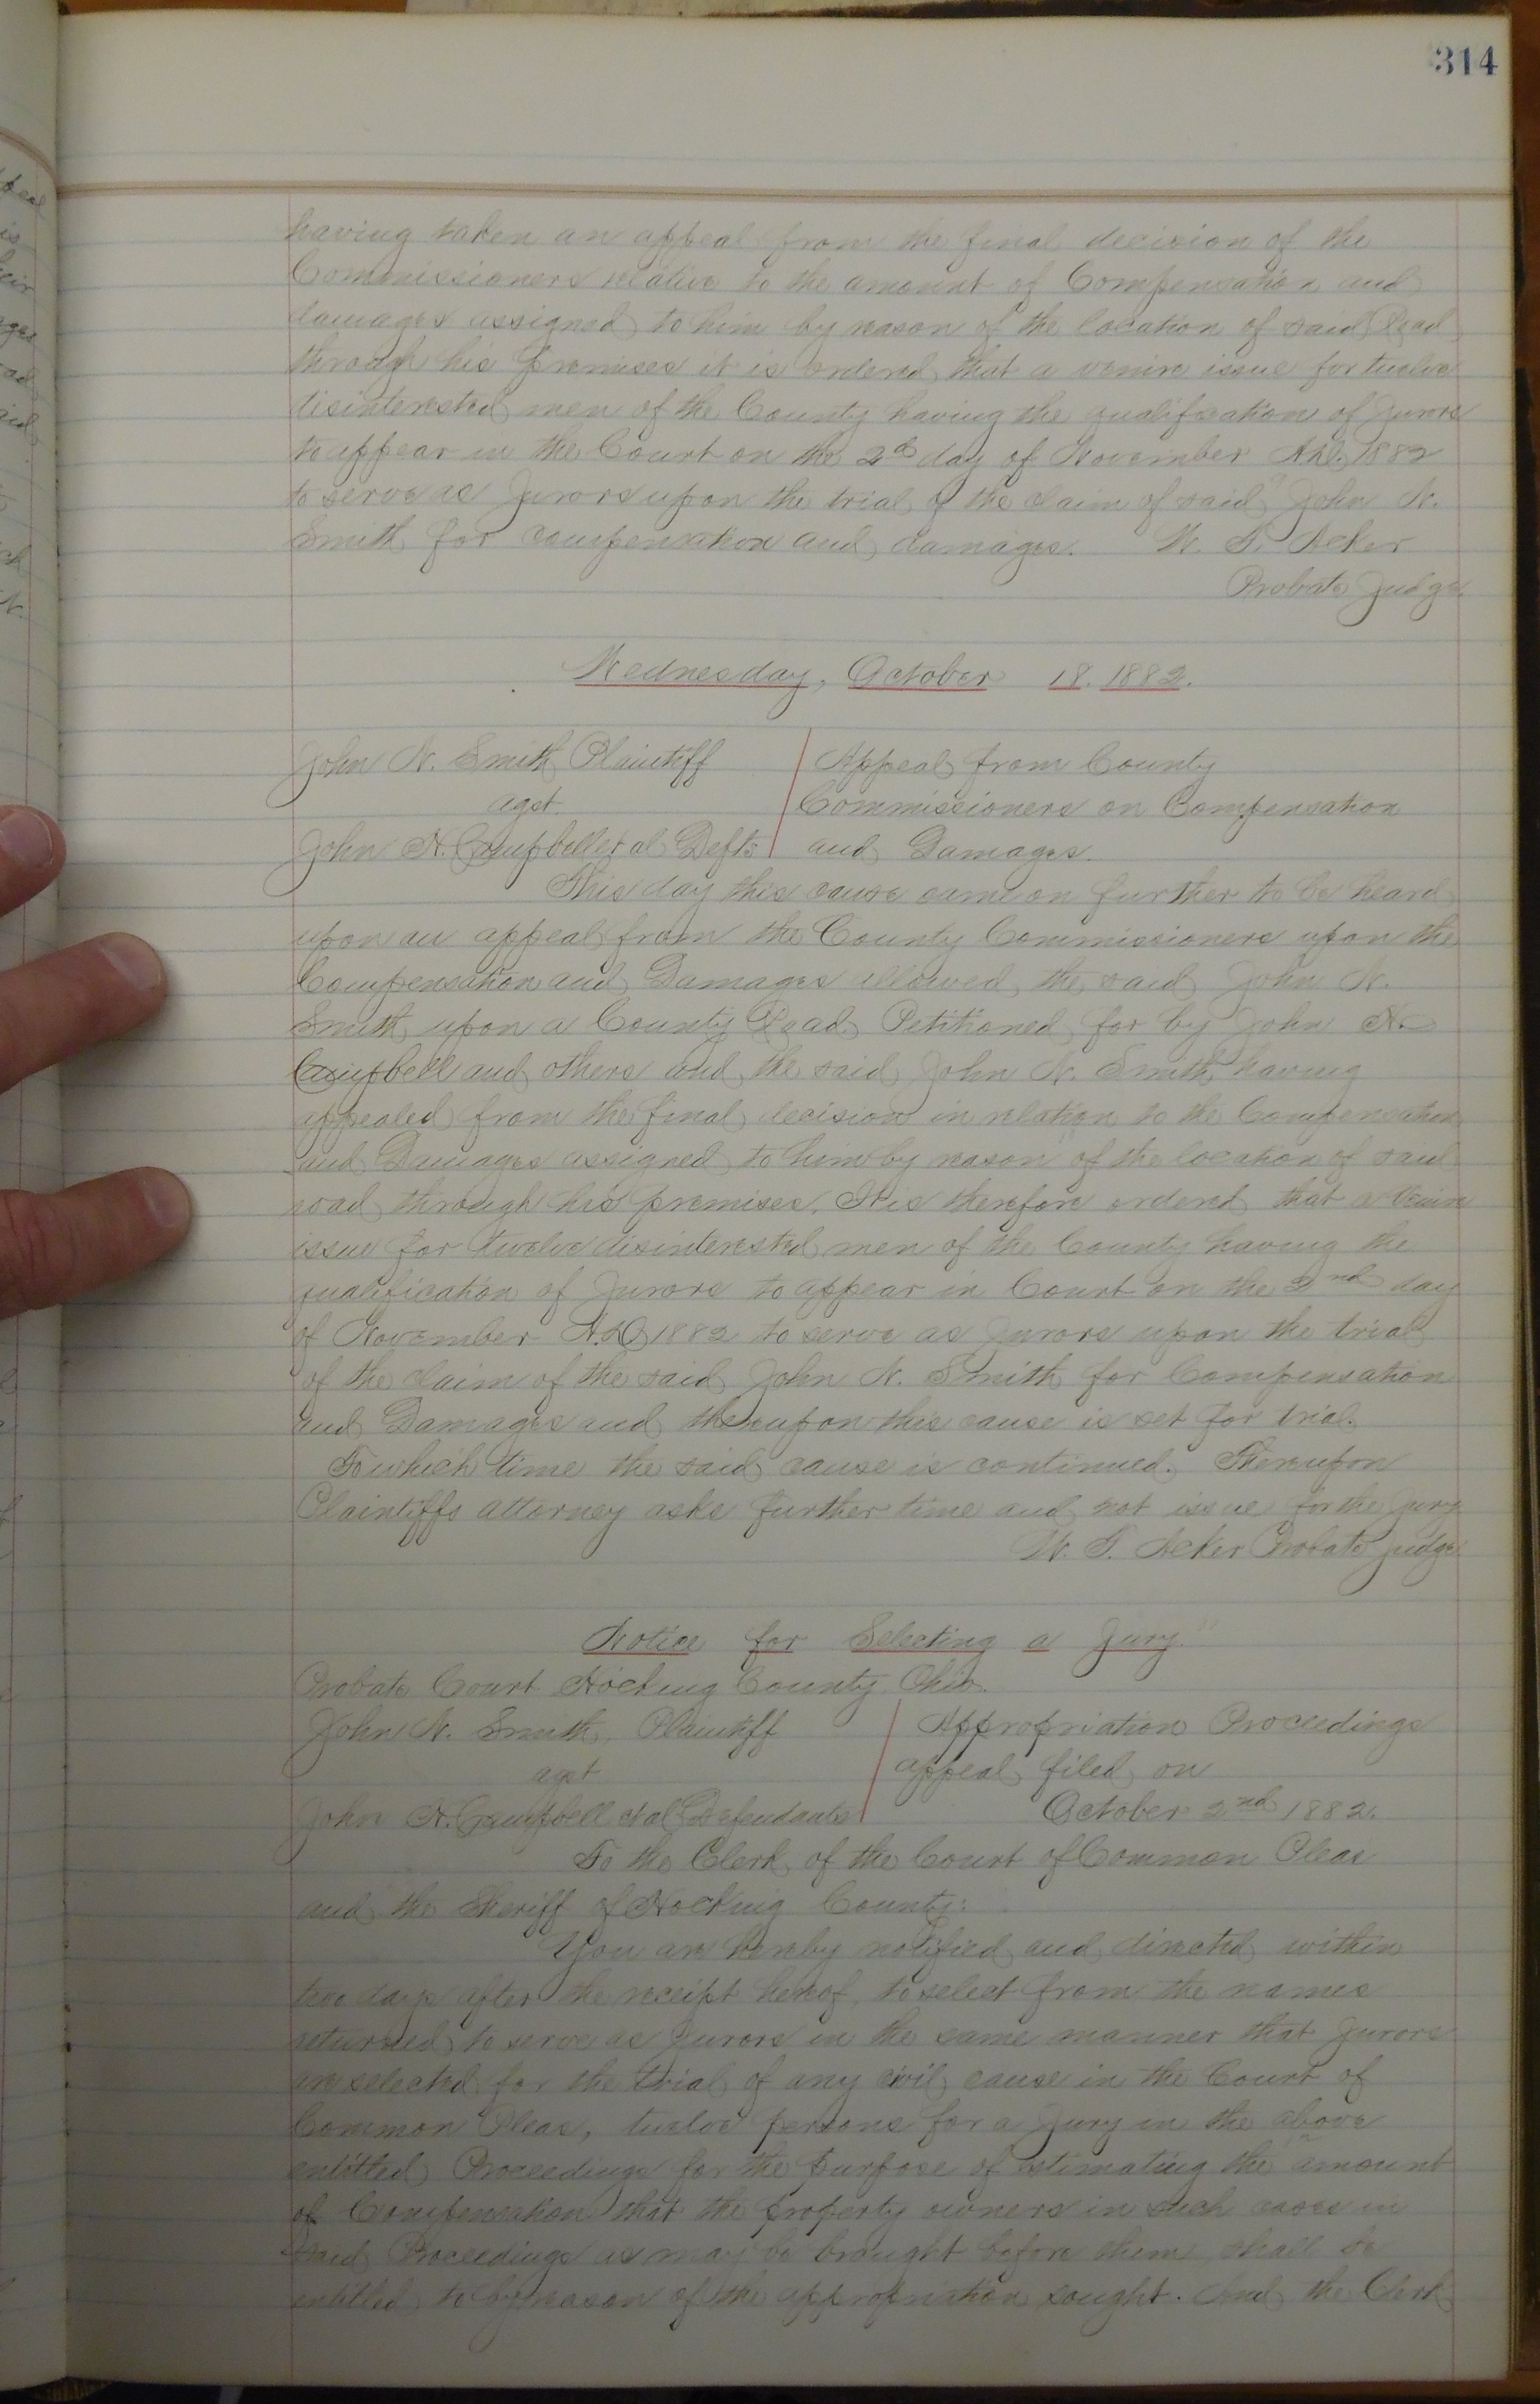 314
having taken an appeal from the final decision of the
Commissioners relative to the amount of Compensation and
damages assigned to him by reason of the location of said Road
through his premises it is ordered that a venire issue for twelve
disinterested men of the County having the qualification of Jurors
to appear in the Court on the 2d day of November A.D. 1882
to serve as Jurors upon the trial of the claim of said John N.
Smith for compensation and damages. W. T. Acker
Probate Judge.
Wednesday, October 18. 1882.
John N. Smith Plaintiff
agst.
John H. Campbell et al Defts
Appeal from County
Commissioners on Compensation
and Damages.
This day this cause came on further to be heard
upon an appeal from the County Commissioners upon the
Compensation and Damages allowed the said John N.
Smith upon a County Road Petitioned for by John H.
Campbell and others and the said John N. Smith having
appealed from the final decision in relation to the Compensation
and Damages assigned to him by reason of the location of said
road through his premises. It is therefore ordered that a
issue for twelve disinterested men of the County having the
qualification of Jurors to appear in Court on the 2nd day
of November A.D. 1882 to serve as Jurors upon the trial
of the claim of the said John N. Smith for Compensation
and Damages and thereupon this cause is set for trial.
To which time the said cause is continued. Thereupon
Plaintiffs attorney asks further time and not issue for the Jury
W. T. Acker Probate Judge.
Notice for Selecting a Jury."
Probate Court Hocking County Ohio.
John N. Smith, Plaintiff
agst
John H. Campbell et al Defendants
Appropriation Proceedings
appeal filed on
October 2nd 1882.
To the Clerk of the Court of Common Pleas
and the Sheriff of Hocking County:
You are hereby notified and directed within
two days after the receipt hereof, to select from the names
returned to serve as Jurors in the same manner that Jurors
are selected for the trial of any civil cause in the Court of
Common Pleas, twelve persons for a Jury in the above
entitled Proceedings for the purpose of estimating the amount
of Compensation that the property owners in such cases in
said Proceedings as may be brought before them shall be
entitled to by reason of the appropriation sought. And the Clerk